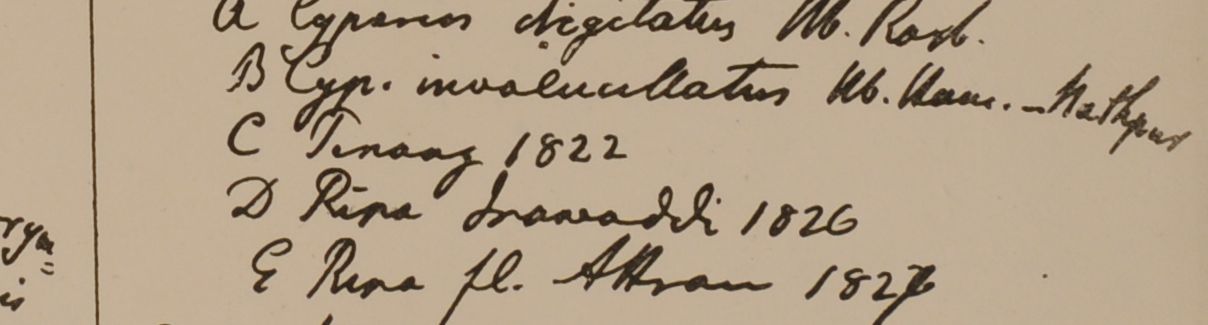 A Cyperus digitatus Hb. Roxb.
B Cyp. involucellatus Hb. Ham. - Nathpur
C Penang 1822
D Ripa Irawaddi 1826
E Ripa fl. Attran 1827